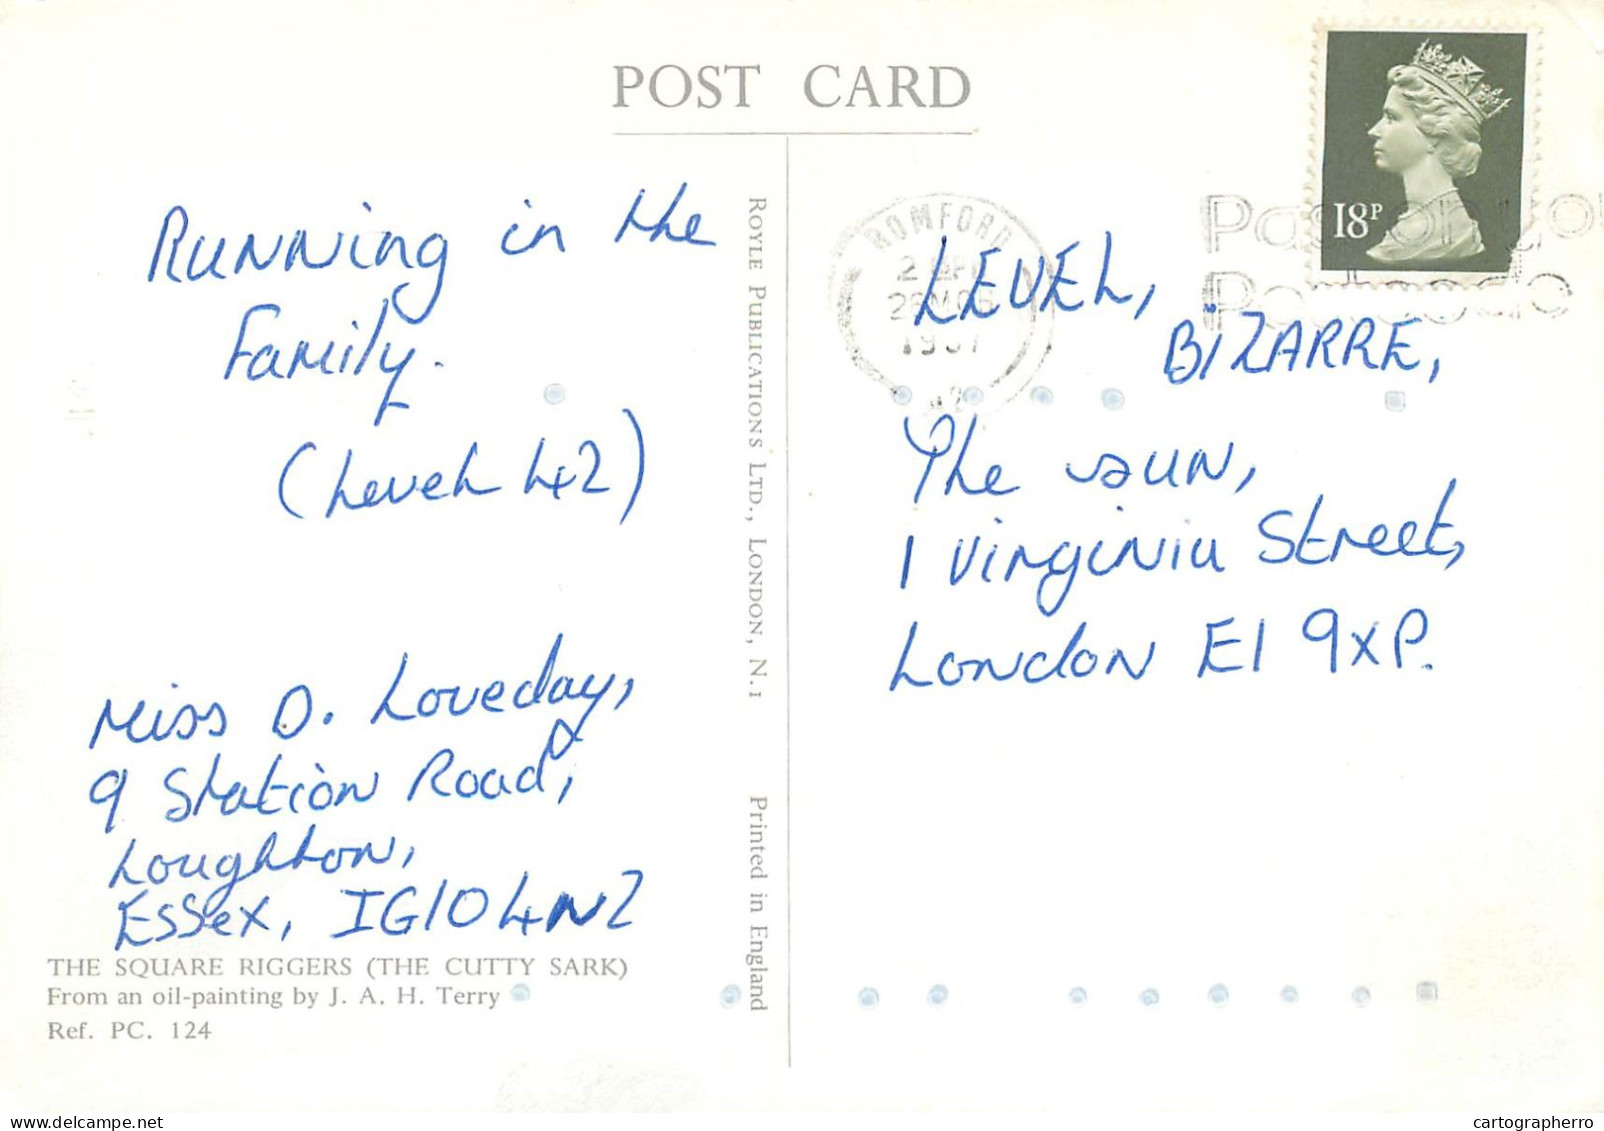 POST CARD
Running in the
Family.
(Level 42)
Miss D. Loveday,
9 Station Road,
Loughton,
Essex, IG10 4NZ
THE SQUARE RIGGERS (THE CUTTY SARK)
From an oil-painting by J. A. H. Terry
Ref. PC. 124
ROYLE PUBLICATIONS LTD., LONDON, N.1
Printed in England
18P
ROMFORD
1987
Pass on your
Postcode
LEVEL,
BIZARRE,
The sun,
1 Virginia Street,
London E1 9XP.
cartographerro